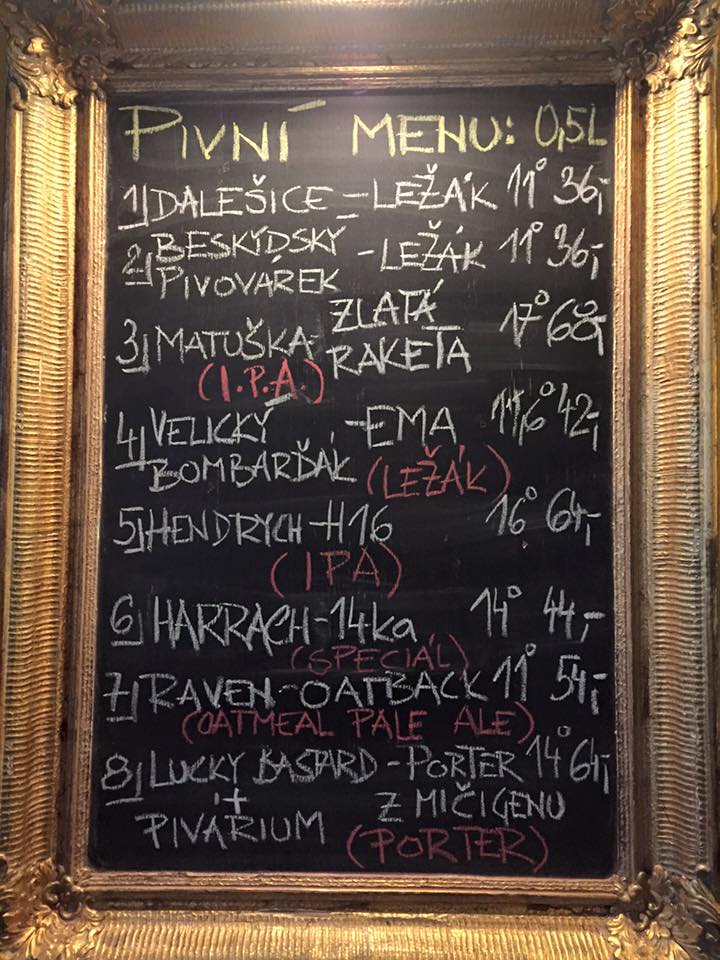 PIVNÍ MENU: 0,5L
1) DALEŠICE - LEŽÁK 11° 36,-
2) BESKYDSKÝ PIVOVÁREK - LEŽÁK 11° 36,-
3) MATUŠKA - ZLATÁ RAKETA 17° 68,-
(I.P.A.)
4) VELICKÝ BOMBARĎÁK - EMA 11,6° 42,-
(LEŽÁK)
5) HENDRYCH - H16 16° 64,-
(IPA)
6) HARRACH - 14ka 14° 44,-
(SPECIÁL)
7) RAVEN - OATBACK 11° 54,-
(OATMEAL PALE ALE)
8) LUCKY BASTARD - PORTER 14° 64,-
+ PIVÁRIUM Z MIČIGENU
(PORTER)